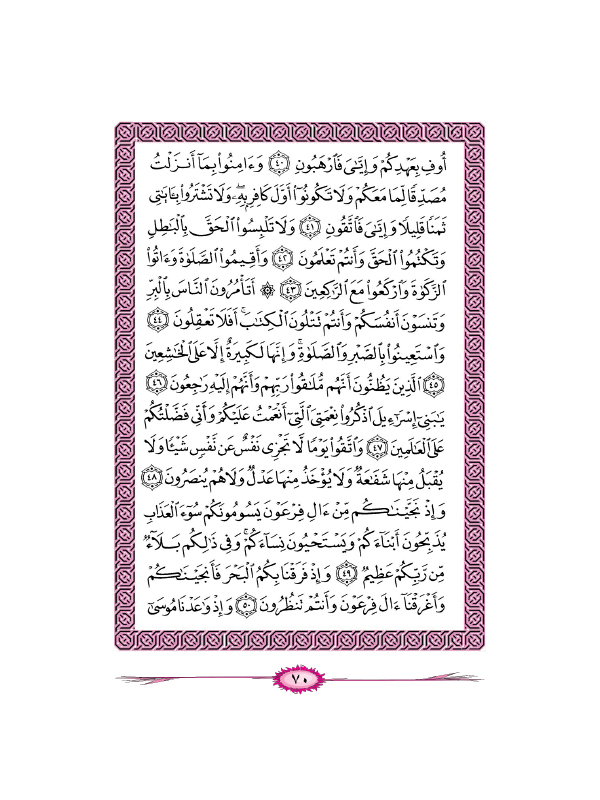 أُوفِ بِعَهْدِكُمْ وَإِيَّٰىَ فَٱرْهَبُونِ ﴿٤٠﴾ وَءَامِنُوا۟ بِمَآ أَنزَلْتُ
مُصَدِّقًا لِّمَا مَعَكُمْ وَلَا تَكُونُوٓا۟ أَوَّلَ كَافِرٍۭ بِهِۦ ۖ وَلَا تَشْتَرُوا۟ بِـَٔايَٰتِى
ثَمَنًا قَلِيلًا وَإِيَّٰىَ فَٱتَّقُونِ ﴿٤١﴾ وَلَا تَلْبِسُوا۟ ٱلْحَقَّ بِٱلْبَٰطِلِ
وَتَكْتُمُوا۟ ٱلْحَقَّ وَأَنتُمْ تَعْلَمُونَ ﴿٤٢﴾ وَأَقِيمُوا۟ ٱلصَّلَوٰةَ وَءَاتُوا۟
ٱلزَّكَوٰةَ وَٱرْكَعُوا۟ مَعَ ٱلرَّٰكِعِينَ ﴿٤٣﴾ ۞ أَتَأْمُرُونَ ٱلنَّاسَ بِٱلْبِرِّ
وَتَنسَوْنَ أَنفُسَكُمْ وَأَنتُمْ تَتْلُونَ ٱلْكِتَٰبَ ۚ أَفَلَا تَعْقِلُونَ ﴿٤٤﴾
وَٱسْتَعِينُوا۟ بِٱلصَّبْرِ وَٱلصَّلَوٰةِ ۚ وَإِنَّهَا لَكَبِيرَةٌ إِلَّا عَلَى ٱلْخَٰشِعِينَ
﴿٤٥﴾ ٱلَّذِينَ يَظُنُّونَ أَنَّهُم مُّلَٰقُوا۟ رَبِّهِمْ وَأَنَّهُمْ إِلَيْهِ رَٰجِعُونَ ﴿٤٦﴾
يَٰبَنِىٓ إِسْرَٰٓءِيلَ ٱذْكُرُوا۟ نِعْمَتِىَ ٱلَّتِىٓ أَنْعَمْتُ عَلَيْكُمْ وَأَنِّى فَضَّلْتُكُمْ
عَلَى ٱلْعَٰلَمِينَ ﴿٤٧﴾ وَٱتَّقُوا۟ يَوْمًا لَّا تَجْزِى نَفْسٌ عَن نَّفْسٍ شَيْـًٔا وَلَا
يُقْبَلُ مِنْهَا شَفَٰعَةٌ وَلَا يُؤْخَذُ مِنْهَا عَدْلٌ وَلَا هُمْ يُنصَرُونَ ﴿٤٨﴾
وَإِذْ نَجَّيْنَٰكُم مِّنْ ءَالِ فِرْعَوْنَ يَسُومُونَكُمْ سُوٓءَ ٱلْعَذَابِ
يُذَبِّحُونَ أَبْنَآءَكُمْ وَيَسْتَحْيُونَ نِسَآءَكُمْ ۚ وَفِى ذَٰلِكُم بَلَآءٌ
مِّن رَّبِّكُمْ عَظِيمٌ ﴿٤٩﴾ وَإِذْ فَرَقْنَا بِكُمُ ٱلْبَحْرَ فَأَنجَيْنَٰكُمْ
وَأَغْرَقْنَآ ءَالَ فِرْعَوْنَ وَأَنتُمْ تَنظُرُونَ ﴿٥٠﴾ وَإِذْ وَٰعَدْنَا مُوسَىٰٓ
٧٠